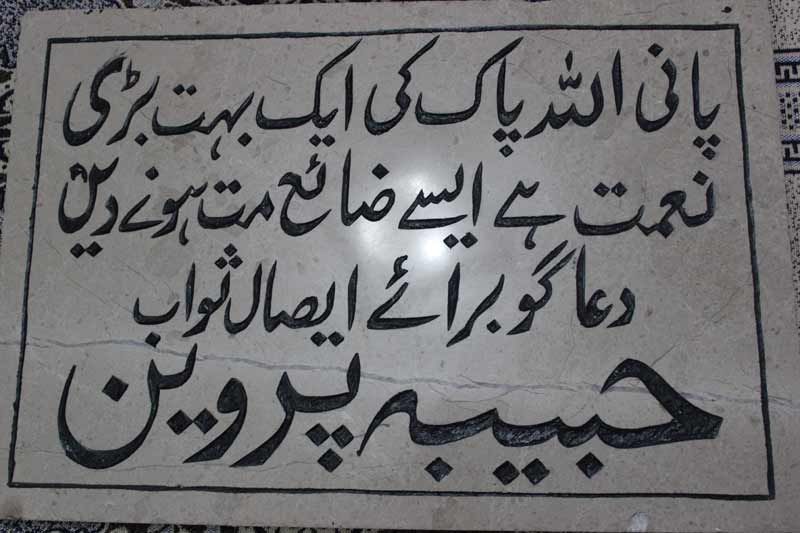 پانی اللہ پاک کی ایک بہت بڑی
نعمت ہے ایسے ضائع مت ہونے دیں
دعا گو برائے ایصال ثواب
حبیبہ پروین